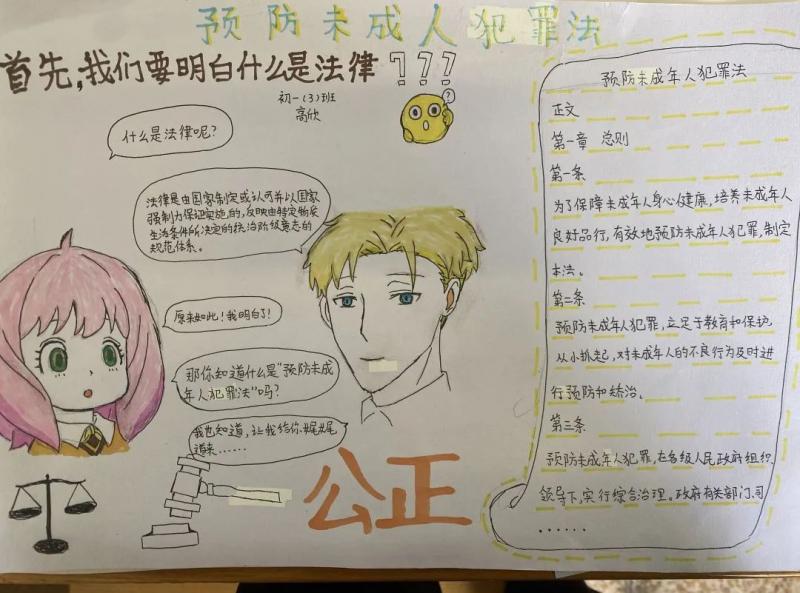 预防未成年人犯罪法
首先,我们要明白什么是法律???
初一(3)班
高欣
?
什么是法律呢?
法律是由国家制定或认可并以国家
强制力保证实施的,反映由特定物质
生活条件所决定的统治阶级意志的
规范体系。
原来如此!我明白了!
那你知道什么是"预防未成
年人犯罪法"吗?
我也知道,让我给你娓娓
道来......
公正
预防未成年人犯罪法
正文
第一章 总则
第一条
为了保障未成年人身心健康,培养未成年人
良好品行,有效地预防未成年人犯罪,制定
本法。
第二条
预防未成年人犯罪,立足于教育和保护,
从小抓起,对未成年人的不良行为及时进
行预防和矫治。
第三条
预防未成年人犯罪,在各级人民政府组织
领导下,实行综合治理。政府有关部门、司
......